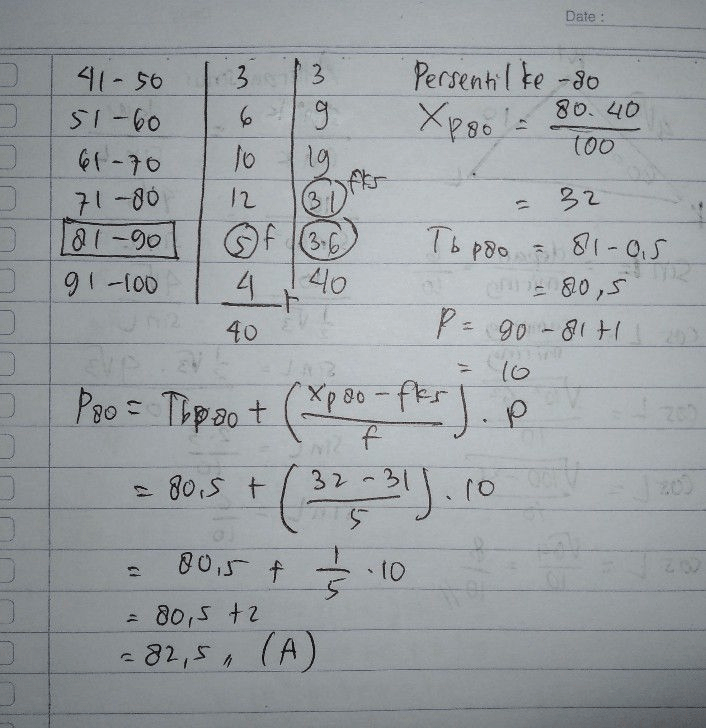 Date :
41-50 | 3 | 3
51-60 | 6 | 9
61-70 | 10 | 19
71-80 | 12 | 31 fks
81-90 | 5 f | 36
91-100 | 4 + | 40
40
Persentil ke -80
Xp80 = 80.40/100
= 32
Tbp80 = 81-0,5
= 80,5
P = 90-81+1
= 10
P80 = Tbp80 + (Xp80 - fks / f) . P
= 80,5 + (32-31 / 5) . 10
= 80,5 + 1/5 . 10
= 80,5 + 2
= 82,5 // (A)